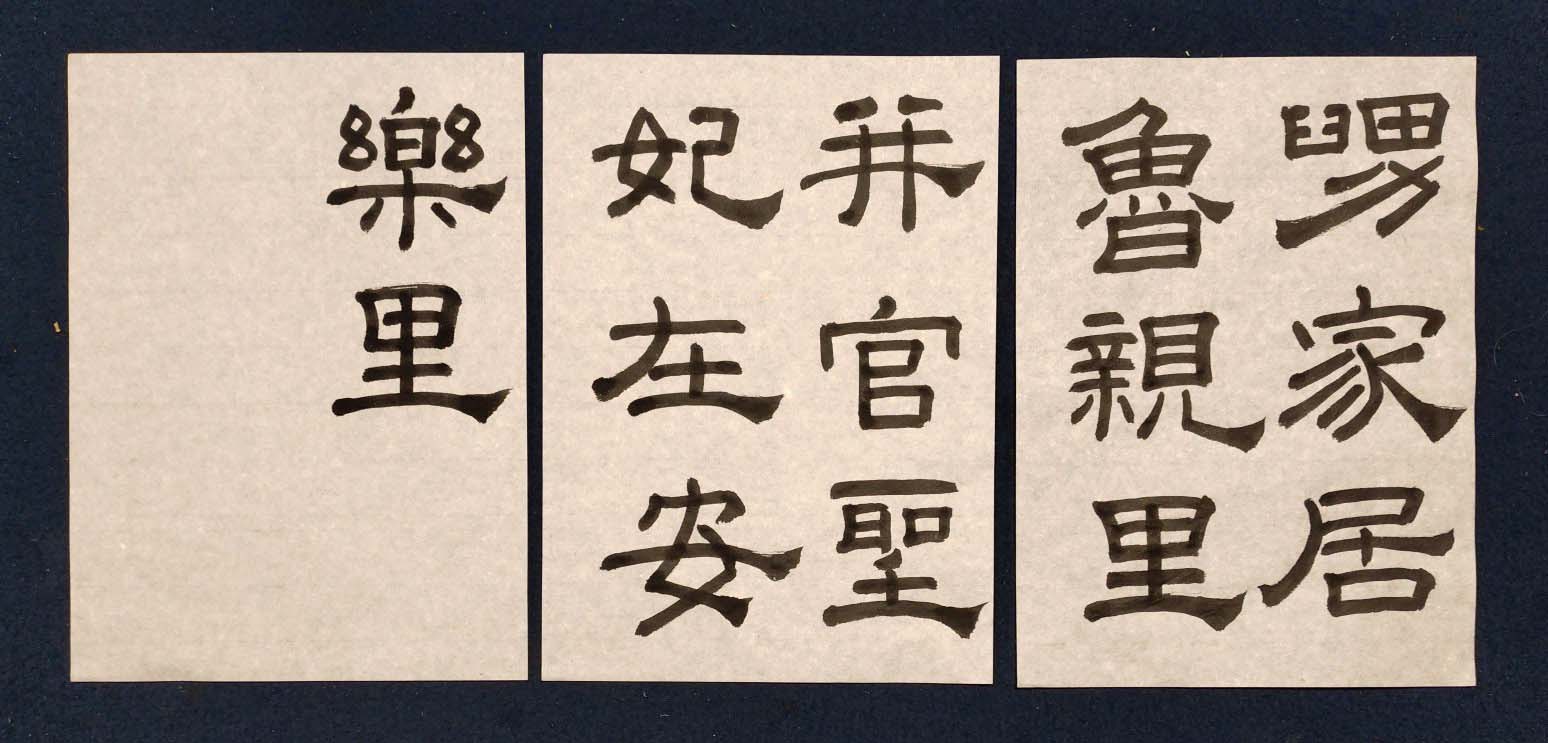 舅家居
魯親里
并官聖
妃在安
樂里